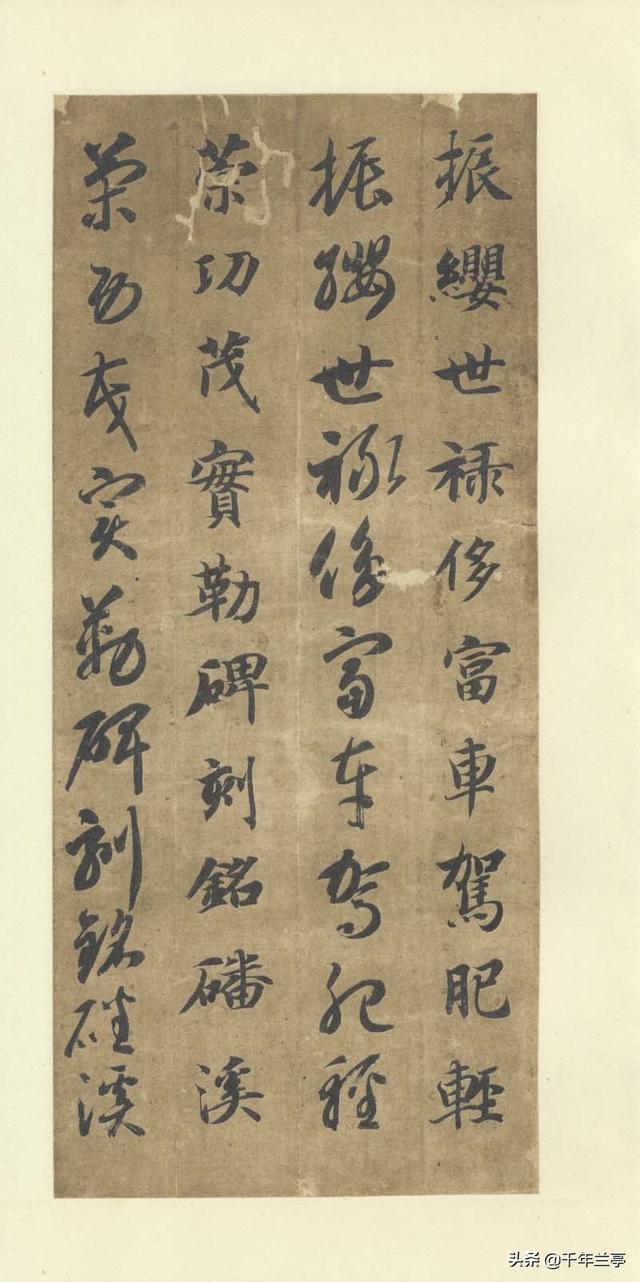 振纓世禄侈富車駕肥輕
振纓世禄侈富車駕肥輕
策功茂實勒碑刻銘磻溪
策功茂實勒碑刻銘磻溪
头条 @千年兰亭